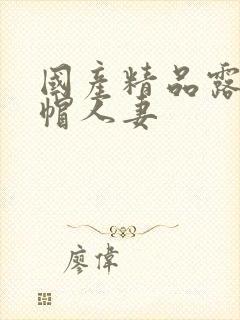 國產精品露
帽人妻
廖偉